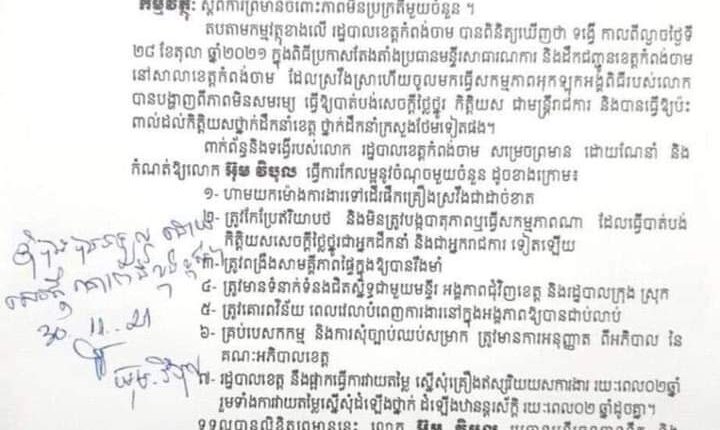 កម្មវត្ថុៈ ស្តីពីការព្រមានចំពោះភាពមិនប្រក្រតីមួយចំនួន ។
តបតាមកម្មវត្ថុខាងលើ រដ្ឋបាលខេត្តកំពង់ចាម បានពិនិត្យឃើញថា ទង្វើ កាលពីល្ងាចថ្ងៃទី
២៨ ខែតុលា ឆ្នាំ២០២១ ក្នុងពិធីប្រកាសតែងតាំងប្រធានមន្ទីរសាធារណការ និងដឹកជញ្ជូនខេត្តកំពង់ចាម
នៅសាលាខេត្តកំពង់ចាម ដែលស្រវឹងស្រាហើយចូលមកធ្វើសកម្មភាពអុកឡុកអង្គពិធីរបស់លោក
បានបង្ហាញពីភាពមិនសមរម្យ ធ្វើឱ្យបាត់បង់សេចក្តីថ្លៃថ្នូរ កិត្តិយស ជាមន្ត្រីរាជការ និងបានធ្វើឱ្យប៉ះ
ពាល់ដល់កិត្តិយសថ្នាក់ដឹកនាំខេត្ត ថ្នាក់ដឹកនាំក្រសួងថែមទៀតផង។
ពាក់ព័ន្ធនិងទង្វើរបស់លោក រដ្ឋបាលខេត្តកំពង់ចាម សម្រេចព្រមាន ដោយណែនាំ និង
កំណត់ឱ្យលោក អ៊ុម វិបុល ធ្វើការកែលម្អនូវចំណុចមួយចំនួន ដូចខាងក្រោម៖
១- ហាមយកម៉ោងការងារទៅដើរផឹកគ្រឿងស្រវឹងជាដាច់ខាត
២- ត្រូវកែប្រែឥរិយាបថ និងមិនត្រូវបង្កបាតុភាពឬធ្វើសកម្មភាពណា ដែលធ្វើបាត់បង់
កិត្តិយសសេចក្តីថ្លៃថ្នូរជាអ្នកដឹកនាំ និងជាអ្នករាជការ ទៀតឡើយ
៣- ត្រូវពង្រឹងសាមគ្គីភាពផ្ទៃក្នុងឱ្យបានរឹងមាំ
៤- ត្រូវមានទំនាក់ទំនងជិតស្និទ្ធជាមួយមន្ទីរ អង្គភាពជុំវិញខេត្ត និងរដ្ឋបាលក្រុង ស្រុក
៥- ត្រូវគោរពវិន័យ ពេលវេលាបំពេញការងារនៅក្នុងអង្គភាពឱ្យបានជាប់លាប់
៦- គ្រប់បេសកកម្ម និងការសុំច្បាប់ឈប់សម្រាក ត្រូវមានការអនុញ្ញាត ពីអភិបាល នៃ
គណៈអភិបាលខេត្ត
៧- រដ្ឋបាលខេត្ត នឹងផ្អាកធ្វើការវាយតម្លៃ ស្នើសុំគ្រឿងឥស្សរិយយសការងារ រយៈពេល០២ឆ្នាំ
រួមទាំងការវាយតម្លៃស្នើសុំដំឡើងថ្នាក់ ដំឡើងឋានន្តរស័ក្តិ រយៈពេល០២ ឆ្នាំដូចគ្នា។
ទទួលបានលិខិតព្រមាននេះ លោក អ៊ុម វិបុល
30.11.21
អ៊ុម.វិបុល